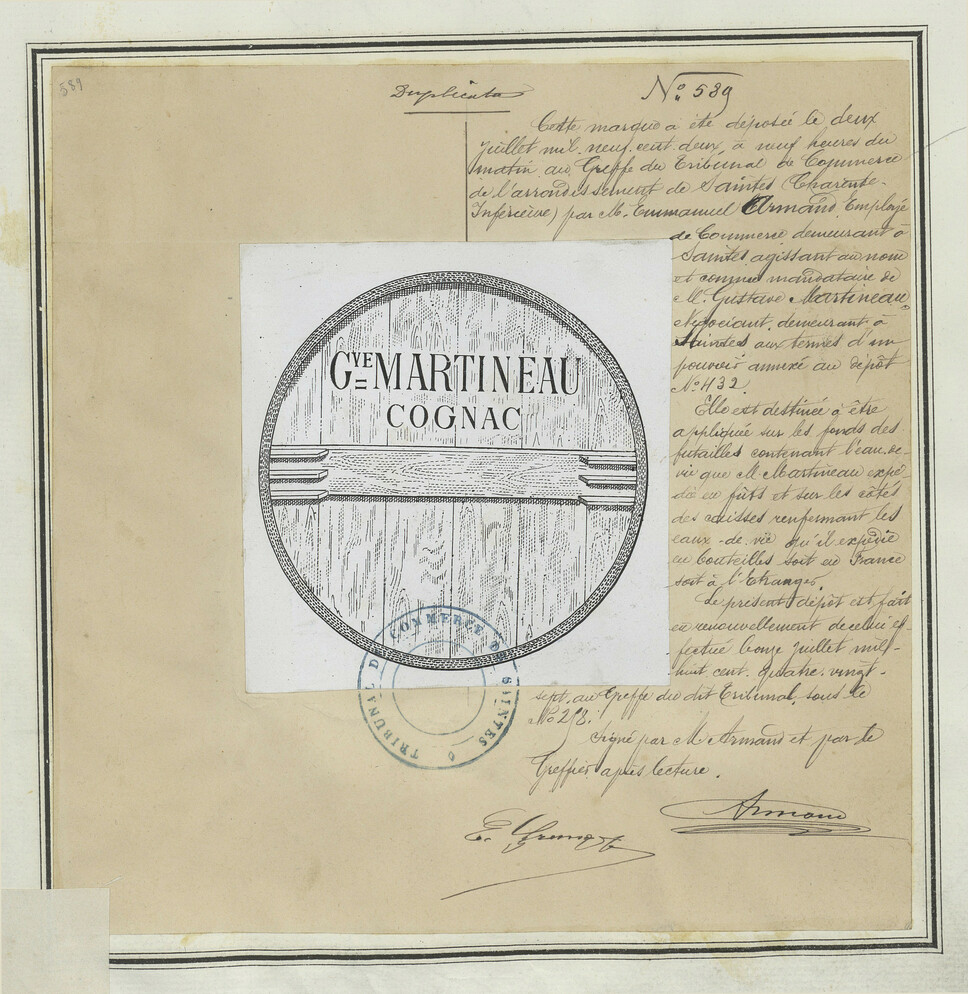 589
Duplicata
No 589
Cette marque a été déposée le deux
Juillet mil neuf cent deux à neuf heures du
matin au Greffe du Tribunal de Commerce
de l'arrondissement de Saintes (Charente-
Inférieure) par M. Emmanuel Armand Employé
de Commerce demeurant à
Saintes agissant au nom
et comme mandataire de
M. Gustave Martineau,
Négociant, demeurant à
Saintes aux termes d'un
pouvoir annexé au dépôt
No 432.
Elle est destinée à être
appliquée sur les fonds des
futailles contenant l'eau-de-
vie que M. Martineau expé-
die en fûts et sur les côtés
des caisses renfermant les
eaux-de-vie qu'il expédie
en bouteilles soit en France
soit à l'Etranger
Le présent dépôt est fait
en renouvellement de celui ef-
fectué le onze juillet mil-
huit cent quatre-vingt-
sept, au Greffe du dit Tribunal, sous le
No 278.
Signé par M. Armand et par le
Greffier après lecture.
GVE MARTINEAU
COGNAC
TRIBUNAL DE COMMERCE DE SAINTES
Armand